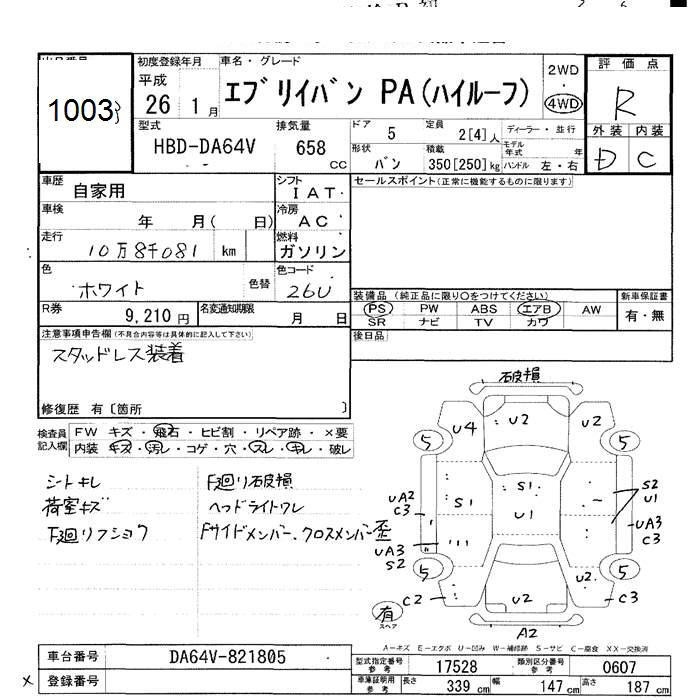 初度登録年月
平成 26 1 月
車名・グレード
エブリイバン PA(ハイルーフ)
2WD
・
4WD
評価点
R
外装 内装
D C
1003
型式
HBD-DA64V
排気量
658 CC
ドア 5
定員 2[4]人
ディーラー・並行
形状 バン
積載 350[250]kg
モデル年式 年
ハンドル 左・右
車歴 自家用
シフト IAT
セールスポイント(正常に機能するものに限ります)
車検 年 月( 日)
冷房 AC
走行 10万8千081 km
燃料 ガソリン
色 ホワイト 色替
色コード 26U
R券 9,210円
名変通知期限 月 日
装備品 (純正品に限り○をつけてください)
PS PW ABS エアB AW
SR ナビ TV カワ
新車保証書
有・無
後日品
注意事項申告欄(不具合内容等は具体的に記入して下さい)
スタッドレス装着
修復歴 有〔箇所 〕
検査員記入欄
FW キズ・飛石・ヒビ割・リペア跡・×要
内装 キズ・汚レ・コゲ・穴・スレ・キレ・破レ
シートキレ
荷室キズ
下廻リフショク
F廻リ破損
ヘッドライトワレ
Fサイドメンバー、クロスメンバー歪
破損
U4 U2 U2
5 5
S1
S1
U1
S2
U1
UA2
C3
UA3
C3
UA3
S2
5 5
U2
C2 U2 C3
有
スペア
A2
A-キズ E-エクボ U-凹み W-補修跡 S-サビ C-腐食 XX-交換済
車台番号 DA64V-821805
登録番号
型式指定番号 参考 17528
類別区分番号 参考 0607
車庫証明用 参考 長さ 339 cm 幅 147 cm 高さ 187 cm